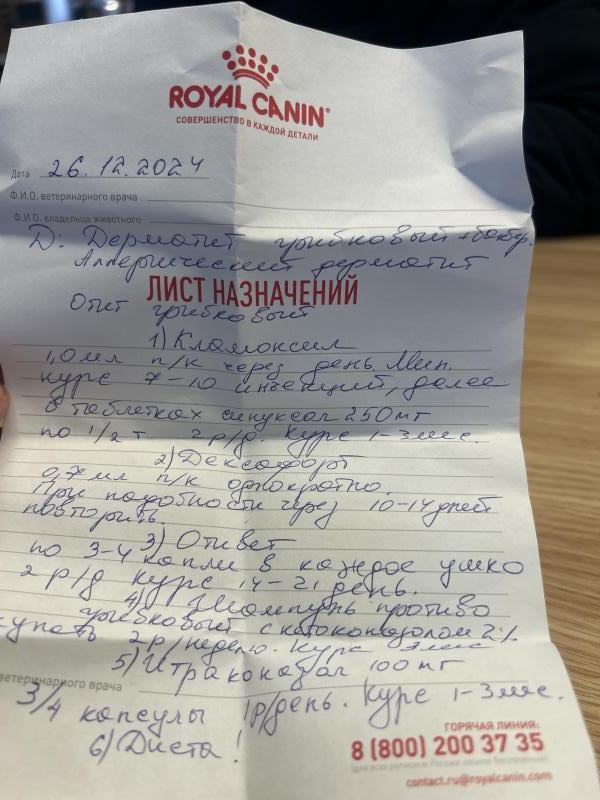 ROYAL CANIN
СОВЕРШЕНСТВО В КАЖДОЙ ДЕТАЛИ
Дата 26.12.2024
Ф.И.О. ветеринарного врача
Ф.И.О. владельца животного
D: Дерматит грибковый + бактер.
Аллергический дерматит
ЛИСТ НАЗНАЧЕНИЙ
Отит грибковый
1) Кламоксил
1,0 мл п/к через день. Мин.
курс 7-10 инъекций, далее
в таблетках синуксал 250 мг
по 1/2 т 2 р/д. Курс 1-3 мес.
2) Дексафорт
0,7 мл п/к однократно.
При надобности через 10-14 дней
повторить.
3) Отивет
по 3-4 капли в каждое ушко
2 р/д курс 14-21 день.
4) Шампунь противо
грибковый с кетоконазолом 2%.
купать 2 р/неделю. Курс мес
5) Итраконазал 100 мг
ветеринарного врача
3/4 капсулы 1 р/день. Курс 1-3 мес.
6) Диета!
ГОРЯЧАЯ ЛИНИЯ:
8 (800) 200 37 35
(для всех регионов России звонок бесплатный)
contact.ru@royalcanin.com